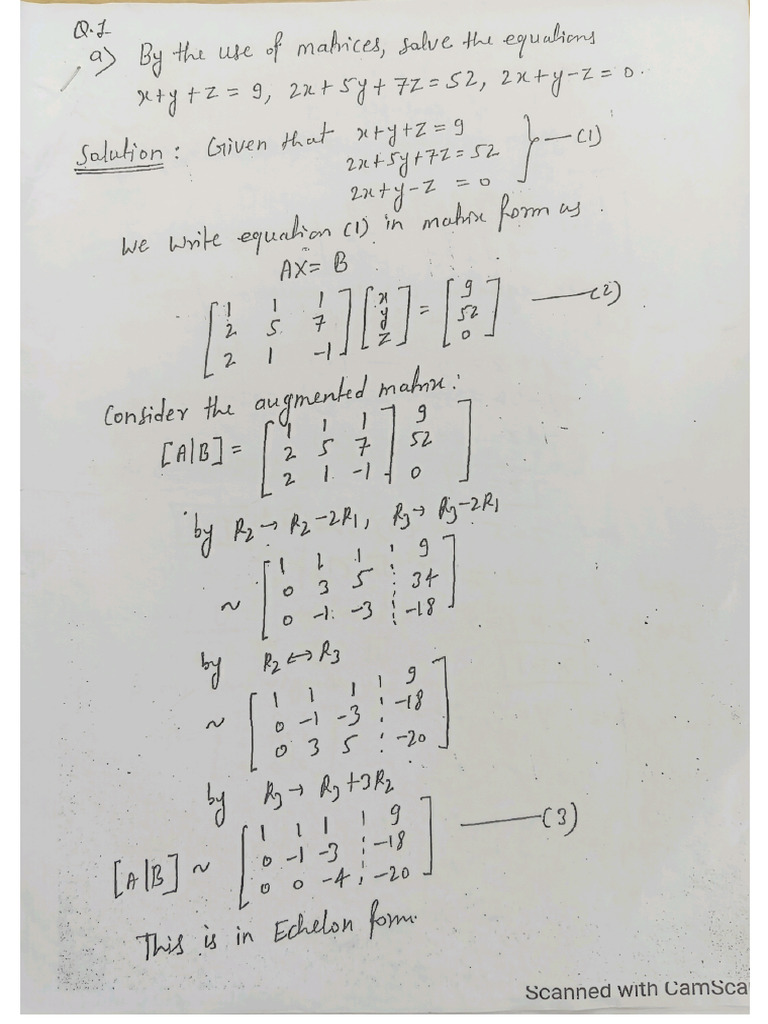 Q.1
a) By the use of matrices, solve the equations
x+y+z = 9, 2x+5y+7z = 52, 2x+y-z = 0.
Solution : Given that x+y+z = 9
2x+5y+7z = 52 } —(1)
2x+y-z = 0
We write equation (1) in matrix form as.
AX = B
[1 1 1; 2 5 7; 2 1 -1] [x; y; z] = [9; 52; 0] —(2)
Consider the augmented matrix:
[A|B] = [1 1 1 | 9; 2 5 7 | 52; 2 1 -1 | 0]
by R2 → R2-2R1, R3 → R3-2R1
~ [1 1 1 : 9; 0 3 5 : 34; 0 -1 -3 : -18]
by R2 ↔ R3
~ [1 1 1 : 9; 0 -1 -3 : -18; 0 3 5 : -20]
by R3 → R3+3R2
[A|B] ~ [1 1 1 : 9; 0 -1 -3 : -18; 0 0 -4 : -20] —(3)
This is in Echelon form.
Scanned with CamSca